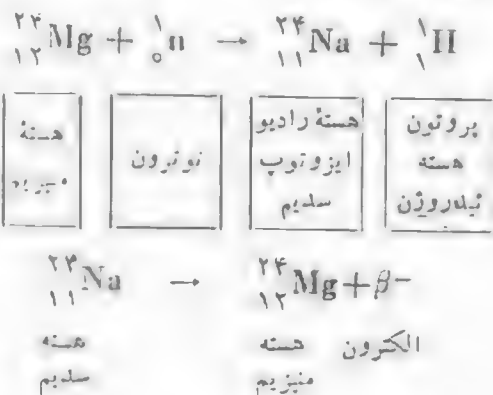 ۲۴
۱۲Mg + ۱
۰n → ۲۴
۱۱Na + ۱
۱H
هستهٔ
نوترون
هستهٔ رادیو
ایزوتوپ
سدیم
پروتون
هسته
ئیدروژن
۲۴
۱۱Na → ۲۴
۱۲Mg + β−
هسته
سدیم
هسته
منیزیم
الکترون